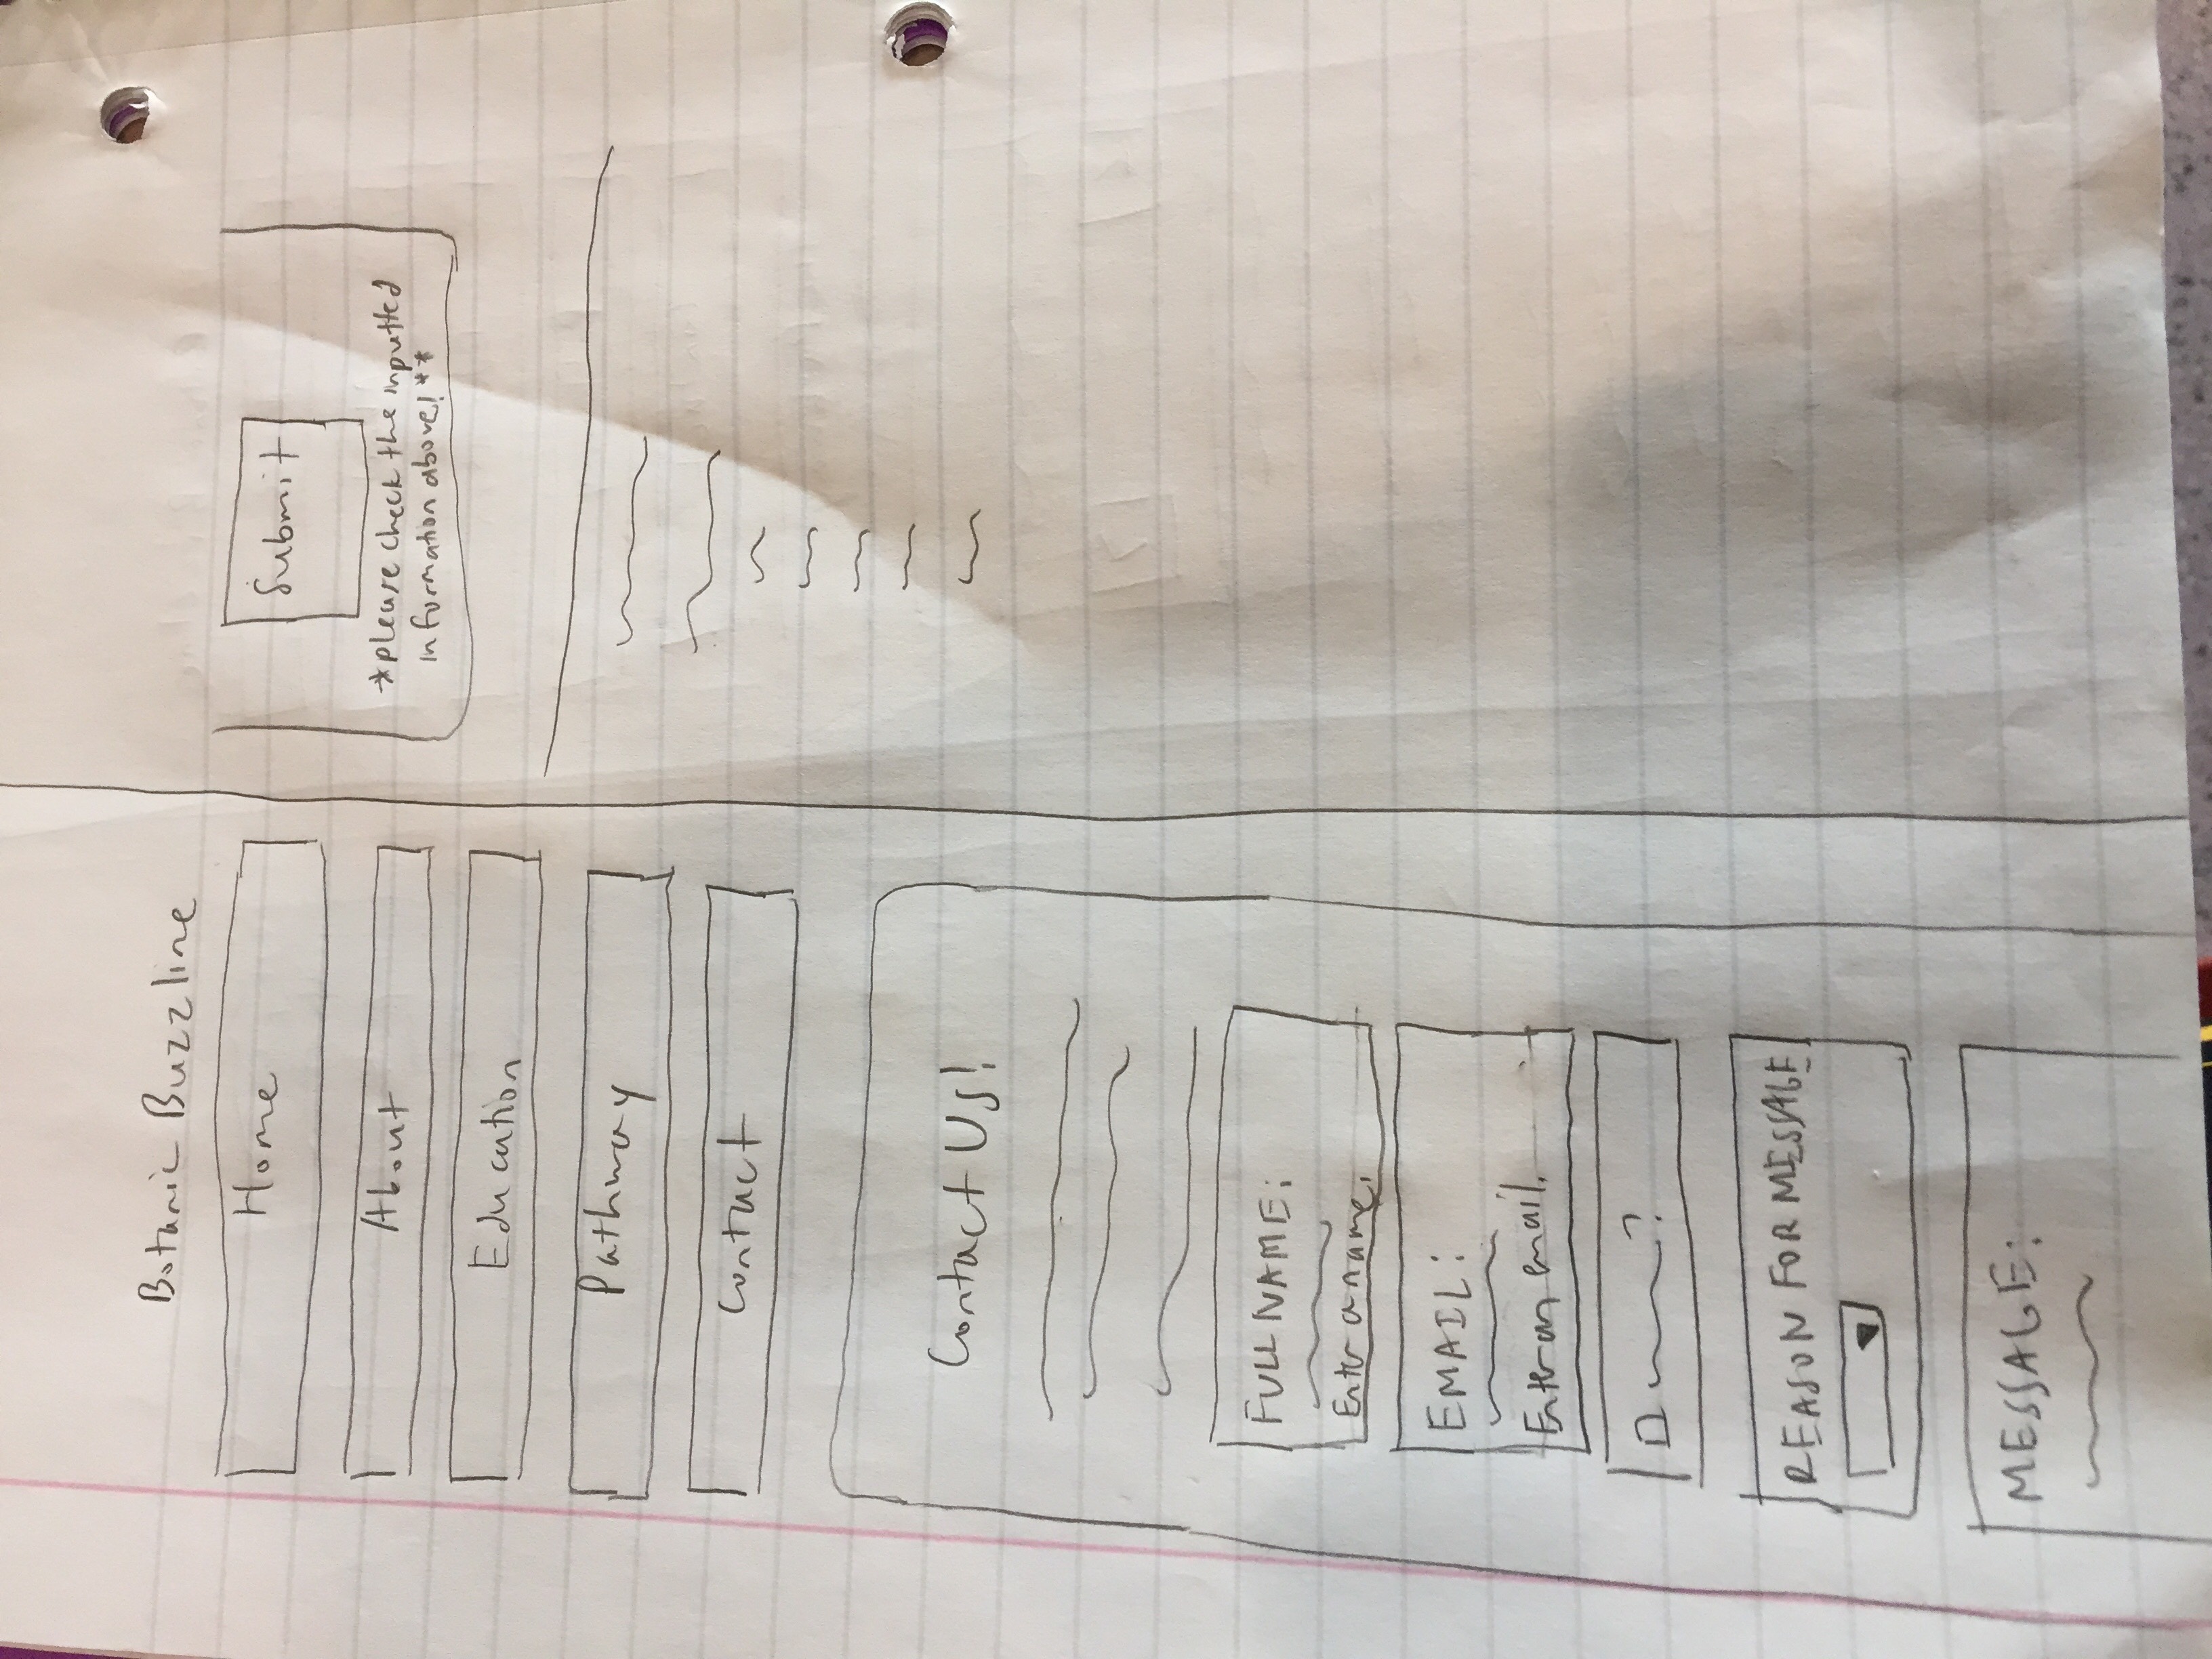 Botanic Buzzline
Home
About
Education
Pathway
Contact
Contact Us!
FULL NAME:
Enter a name.
EMAIL:
Enter an email.
?
REASON FOR MESSAGE
MESSAGE:
Submit
*please check the inputted
information above! **